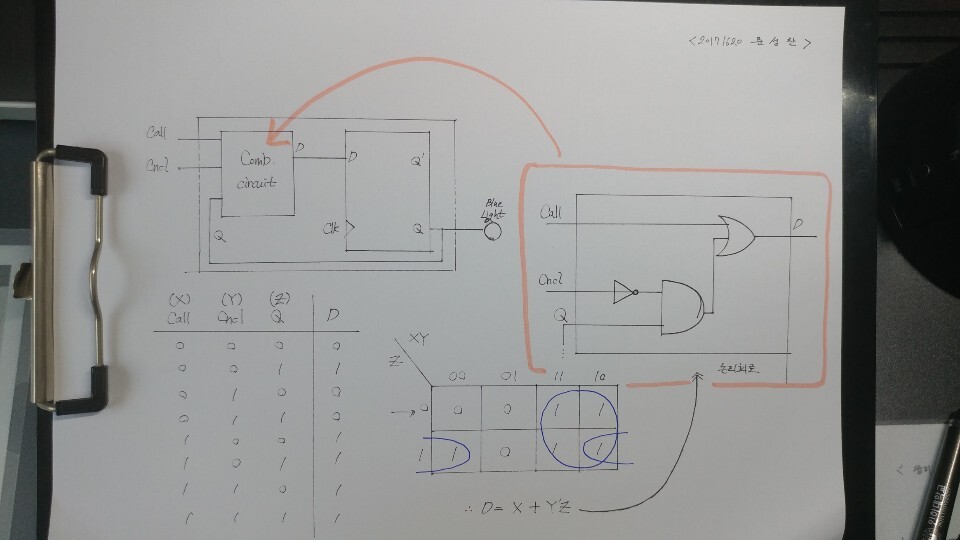 <2017/620 문성찬>
Call
Cncl
Comb
circuit
D
D
Q'
Clk
Q
Q
Blue
Light
Call
Cncl
Q
D
논리회로
(X) (Y) (Z)
Call Cncl Q D
0 0 0 0
0 0 1 1
0 1 0 0
0 1 1 0
1 0 0 1
1 0 1 1
1 1 0 1
1 1 1 1
XY
Z
00 01 11 10
0 0 0 1 1
1 1 0 1 1
∴ D = X + Y'Z